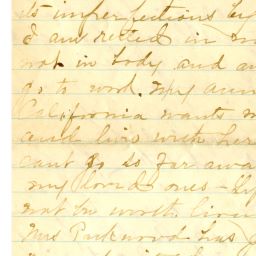 its imperfections by
I am rested in m
not in body and am
go to work. My aun
California wants m
and live with her
cant go so far awa
my loved ones - My
not be worth livin
Mrs Parkwood has